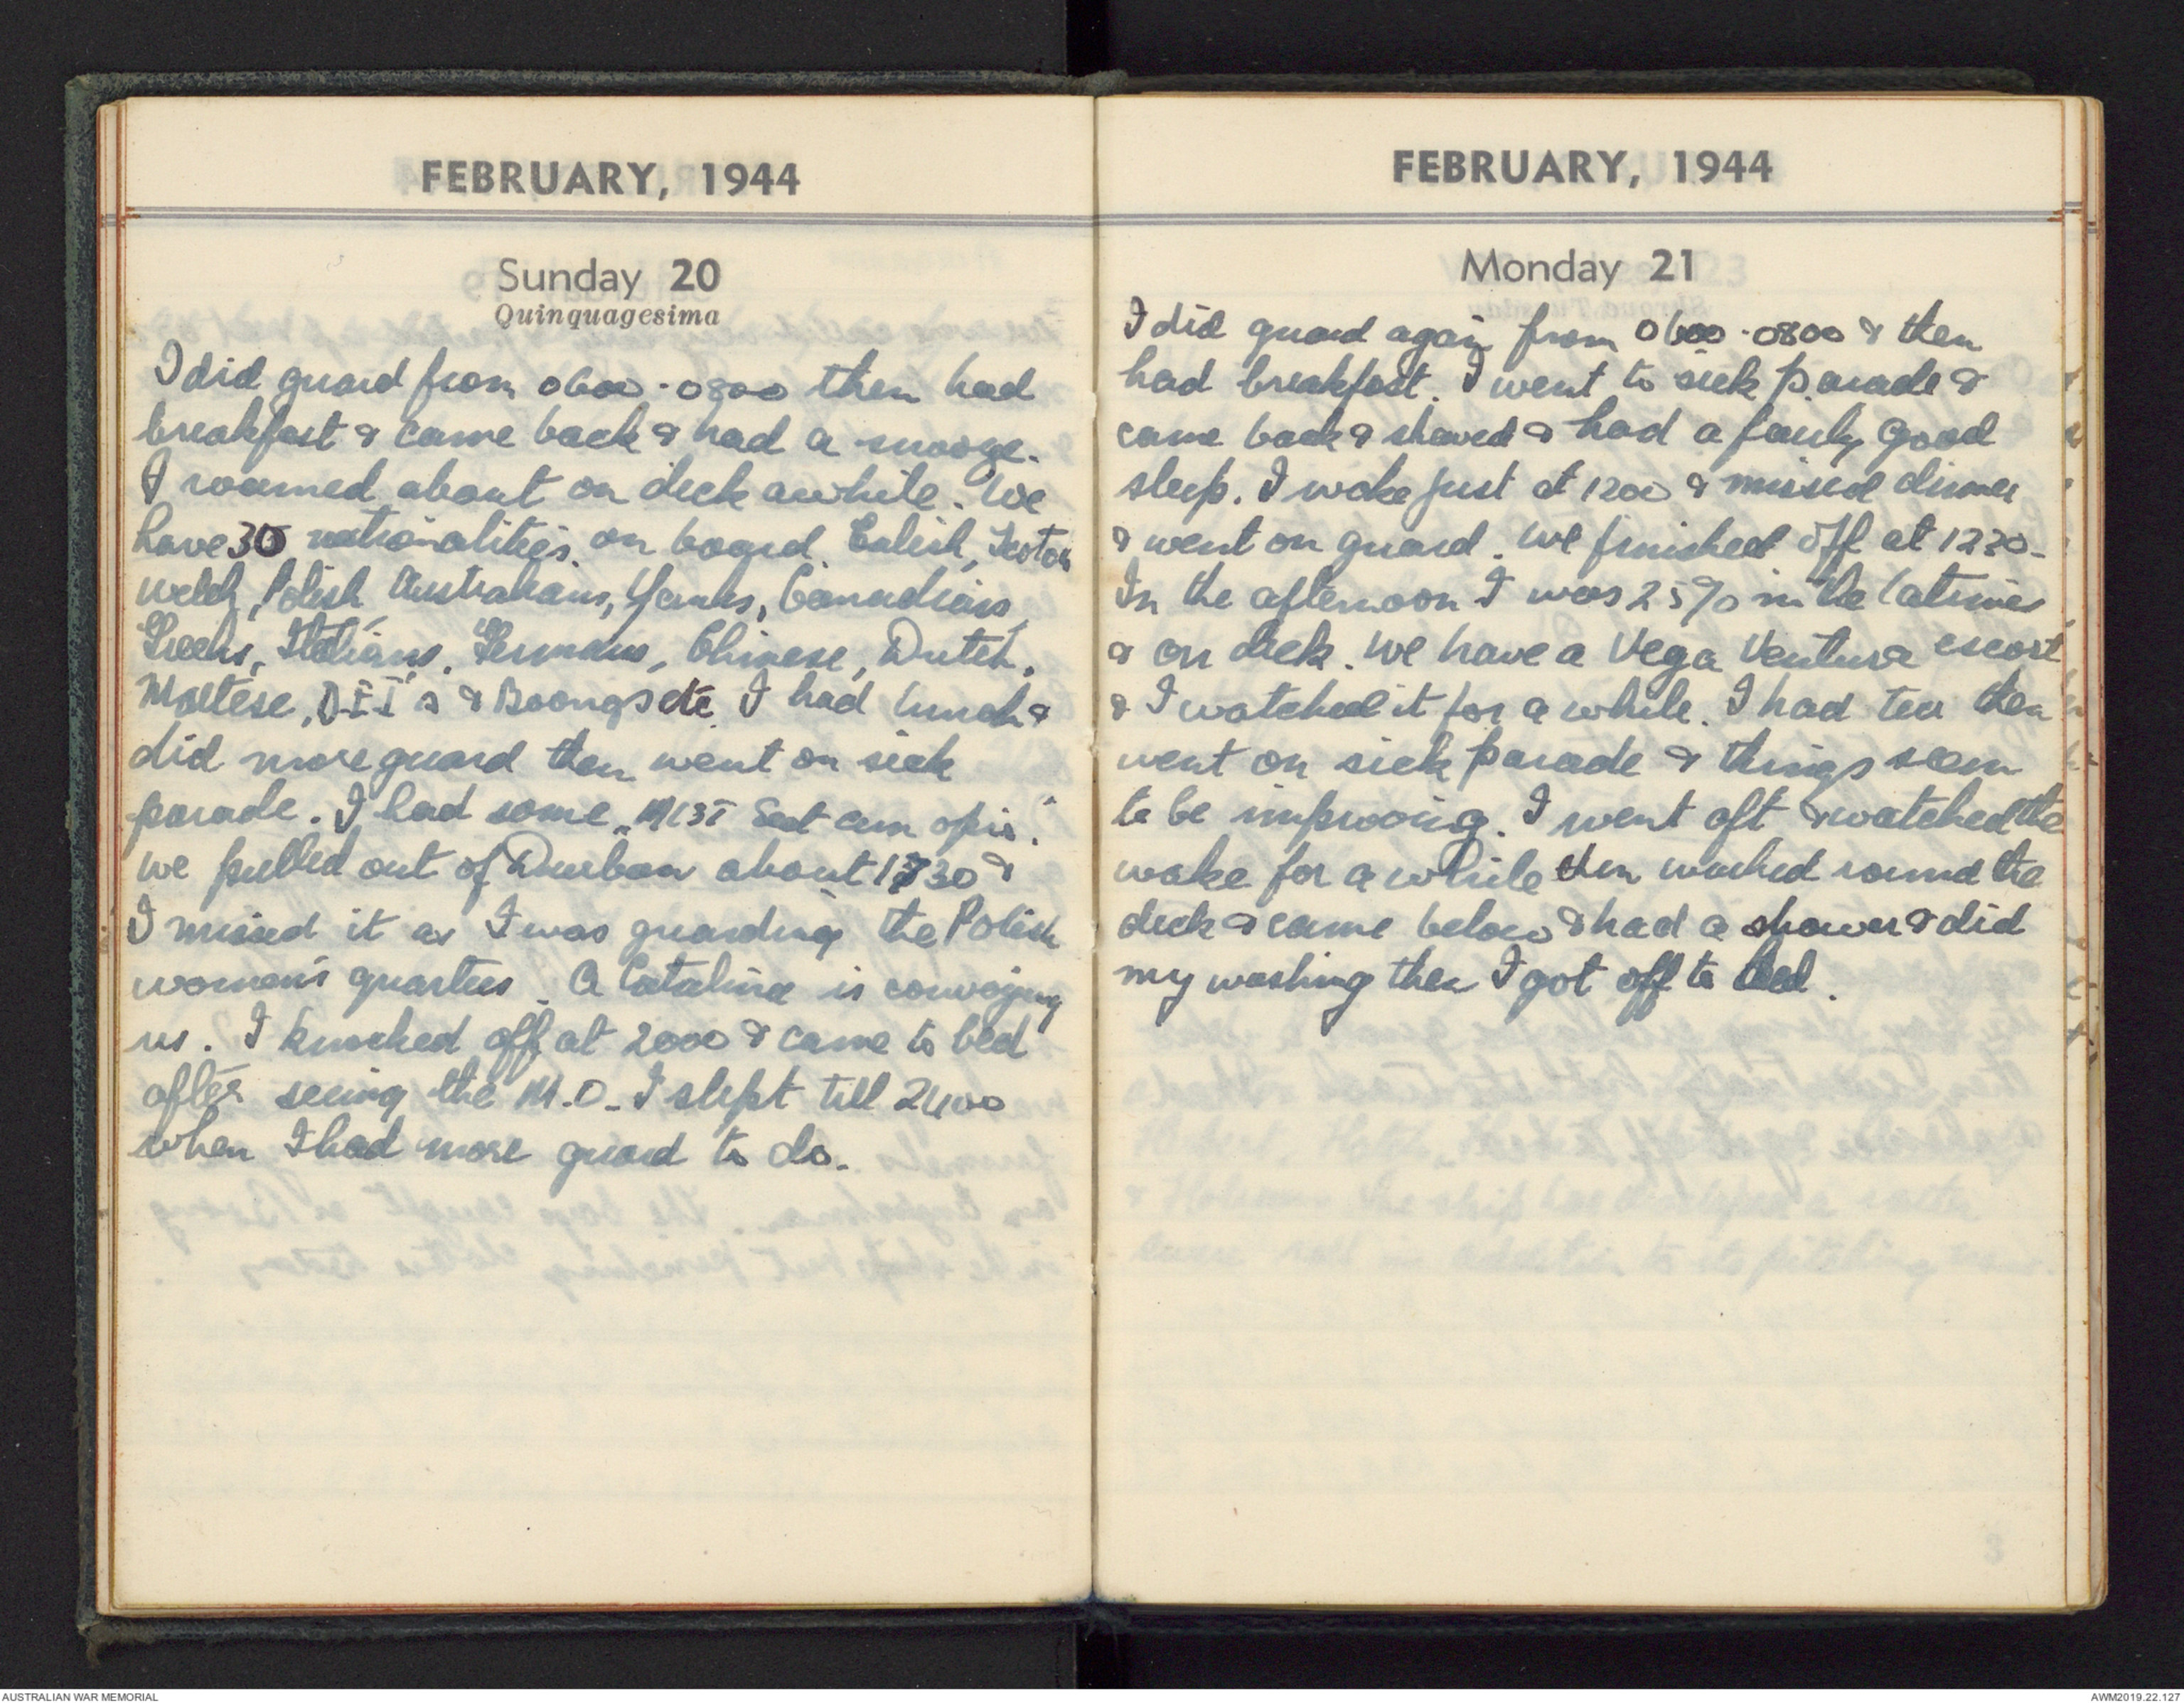 FEBRUARY, 1944
Sunday 20
Quinquagesima
I did guard from 0600-0800 then had
breakfast & came back & had a snooze.
I roamed about on deck awhile. We
have 30 nationalities on board. English, Scotch
Welch, Polish Australians, Yanks, Canadians,
Greeks, Italians, Germans, Chinese, Dutch,
Maltese, & Boongs etc. I had lunch &
did more guard then went on sick
parade. I had some "MIST
We pulled out of Durban about 1730 &
I missed it as I was guarding the Polish
women's quarters. A Catalina is convoying
us. I knocked off at 2000 & came to bed
after seeing the M.O. I slept till 2400
when I had more guard to do.
FEBRUARY, 1944
Monday 21
I did guard again from 0600-0800 & then
had breakfast. I went to sick parade &
came back & shaved & had a fairly good
sleep. I woke just at 1200 & missed dinner
& went on guard. We finished off at 1230.
In the afternoon I was 25% in the latrines
& on deck. We have a Vega Ventura escort
& I watched it for a while. I had tea then
went on sick parade & things seem
to be improving. I went aft & watched the
wake for a while then walked round the
deck & came below & had a shower & did
my washing then I got off to bed.
AUSTRALIAN WAR MEMORIAL
AWM2019.22.127